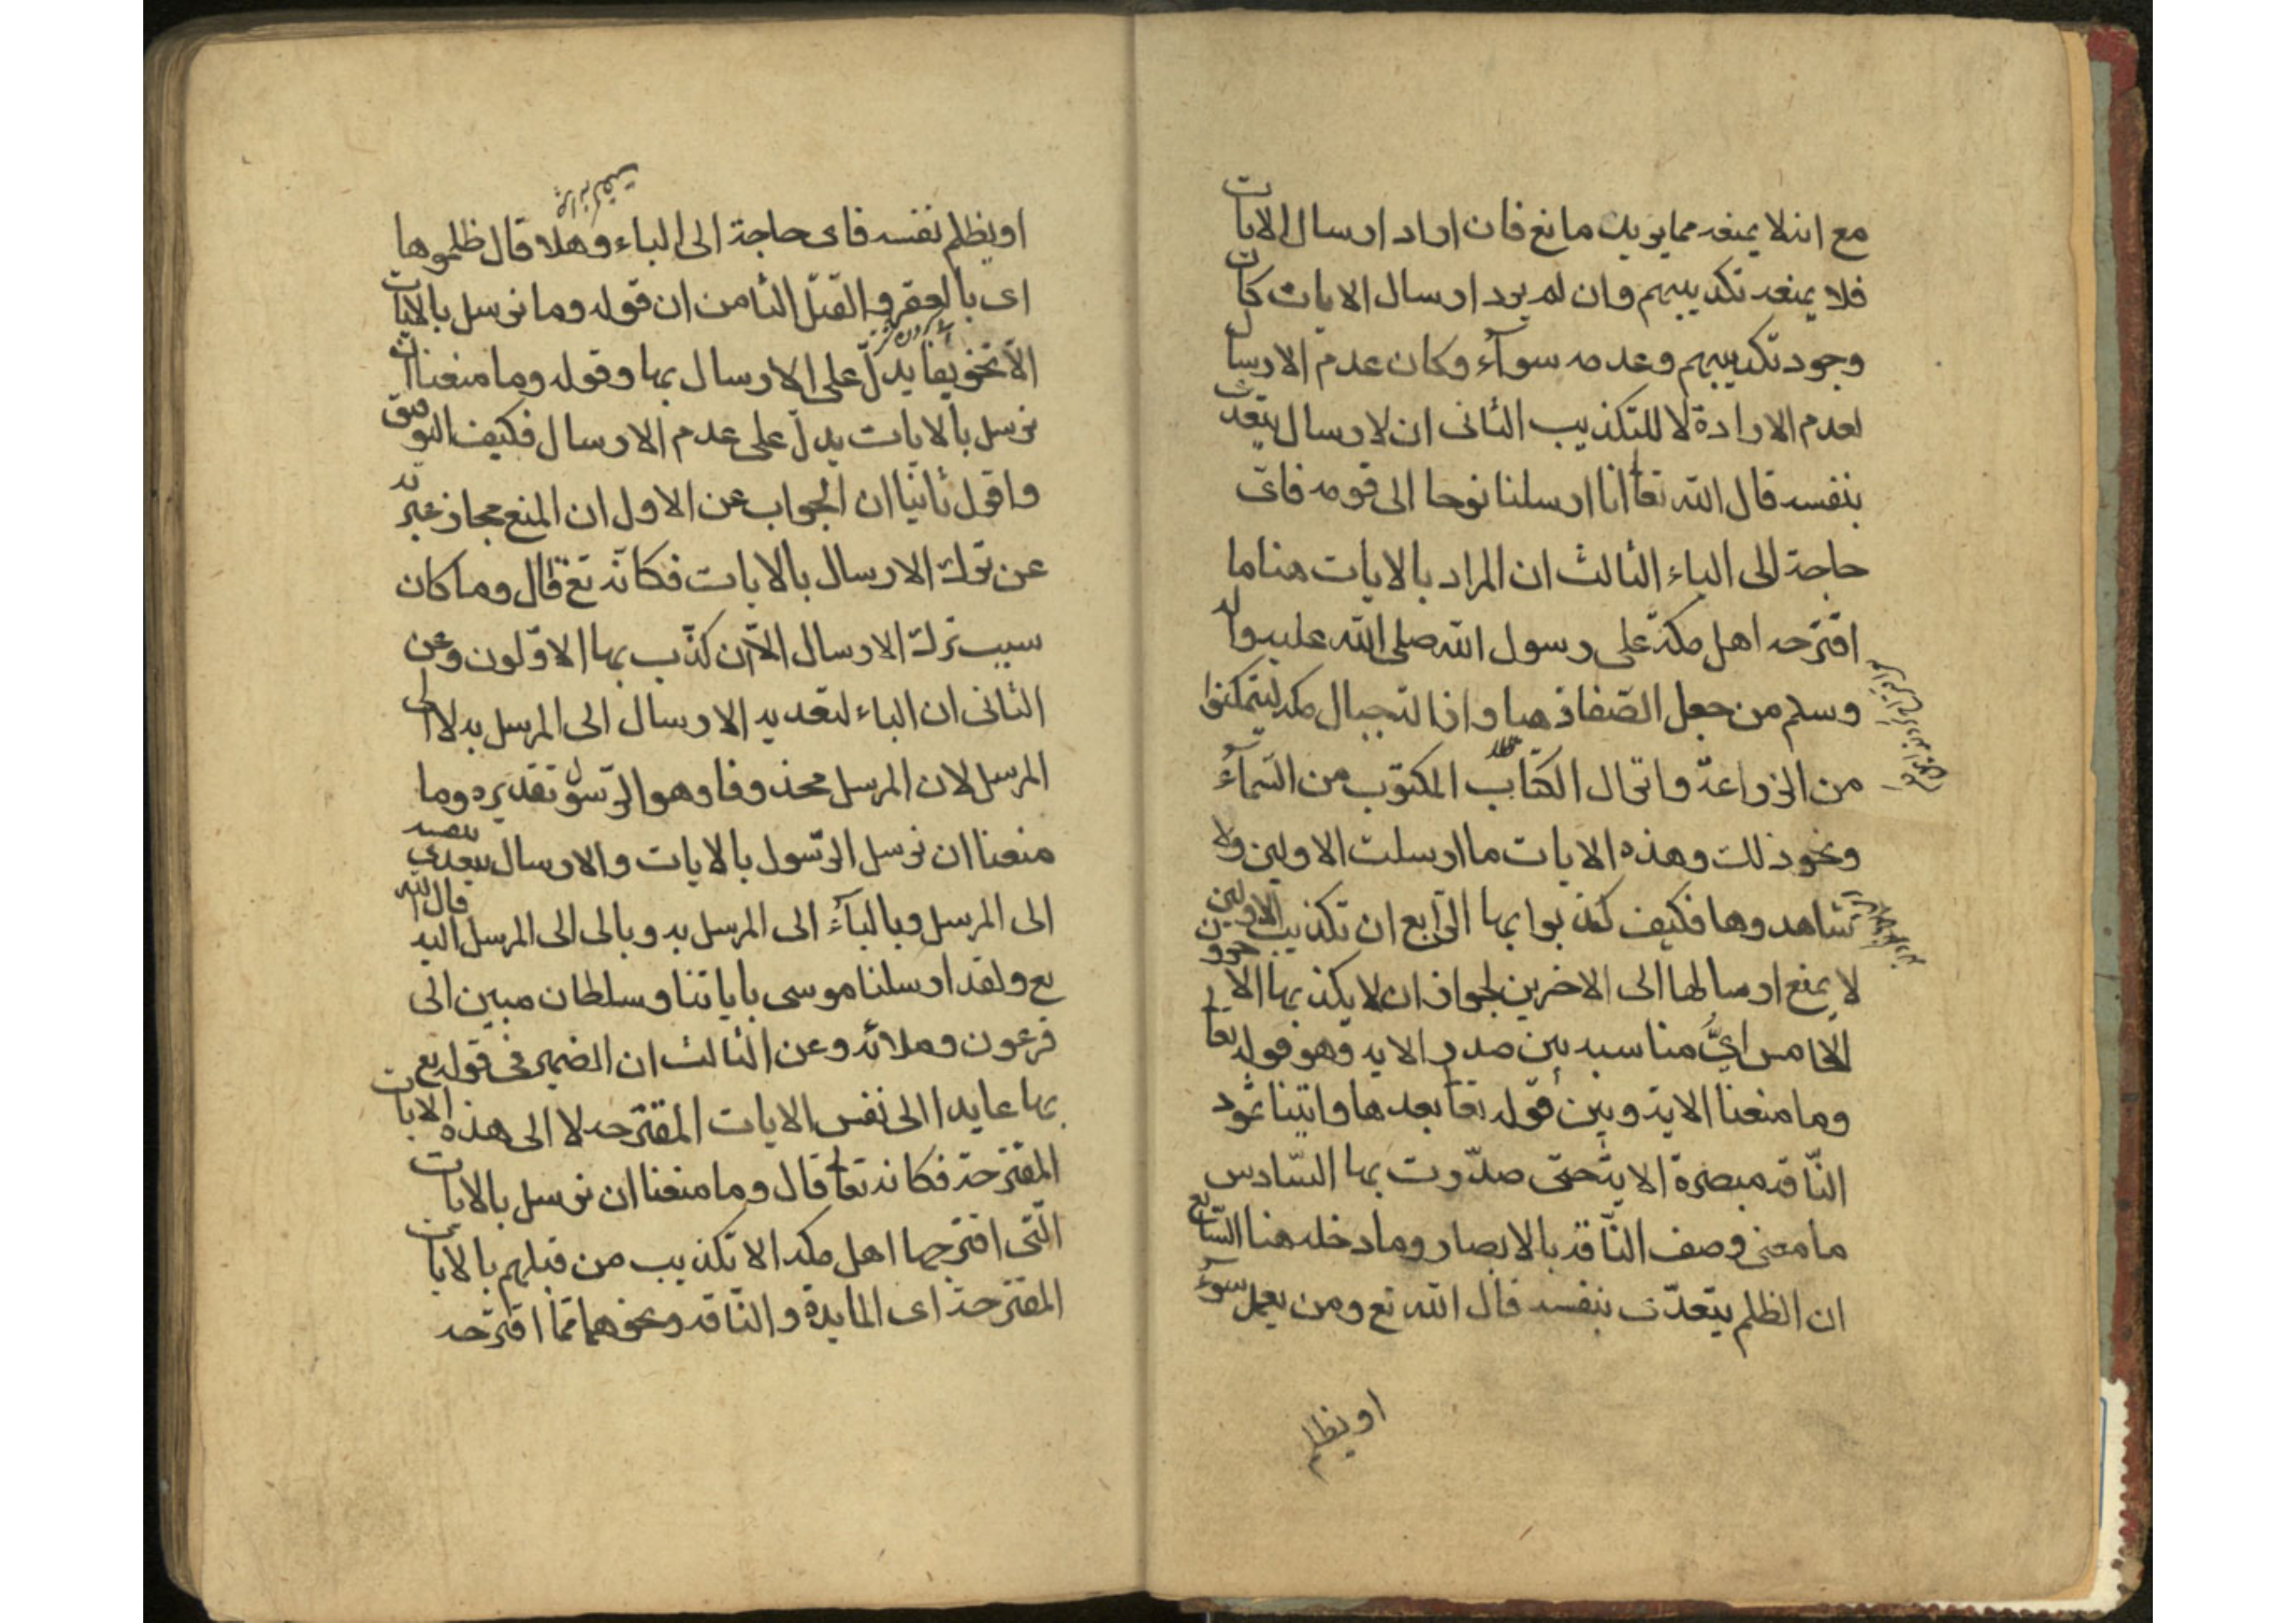 مع انه لا يمنعه مما يريد مانع فان اراد ارسال الايات
فلا يمنعه تكذيبهم وان لم يرد ارسال الايات كان
وجود تكذيبهم وعدمه سوآء وكان عدم الارسال
لعدم الارادة لا للتكذيب الثانى ان لارسال يتعدى
بنفسه قال الله تعا انا ارسلنا نوحا الى قومه فاى
حاجة الى الباء الثالث ان المراد بالايات هنا ما
اقترحه اهل مكة على رسول الله صلى الله عليه واله
وسلم من جعل الصفا ذهبا وازالة جبال مكه ليتمكنوا
من الزراعة وانزال الكتاب المكتوب من السمآء
ونحو ذلك وهذه الايات ما ارسلت الاولين ولا
شاهدوها فكيف كذبوا بها الرابع ان تكذيب الاولين
لا يمنع ارسالها الى الاخرين لجواز ان لا يكذب بها الاخرون
الخامس اىّ مناسبه بين صدر الايه وهو قوله تعا
وما منعنا الاية وبين قوله تعا بعدها واتينا ثمود
الناقه مبصرة الاية حتى صدّرت بها السادس
ما معنى وصف الناقه بالابصار وما دخله هنا السابع
ان الظلم يتعدّى بنفسه قال الله تع ومن يعمل سوء
او يظلم
او يظلم نفسه فاى حاجة الى الباء وهلا قال ظلموها
اى بالعقر والقتل الثامن ان قوله وما نرسل بالايات
الا تخويفا يدلّ على الارسال بها وقوله وما منعنا ان
نرسل بالايات يدل على عدم الارسال فكيف التوفيق
واقول ثانيا ان الجواب عن الاول ان المنع مجاز عبّر به
عن ترك الارسال بالايات فكانه تع قال وما كان
سبب ترك الارسال الا ان كذّب بها الاوّلون وعن
الثانى ان الباء لتعديه الارسال الى المرسل به لا الى
المرسل لان المرسل محذوفا وهو الرسول تقديره وما
منعنا ان نرسل الرسول بالايات والارسال يتعدى بنفسه
الى المرسل وبالبآء الى المرسل به وبالى الى المرسل اليه قال الله
تع ولقد ارسلنا موسى باياتنا وسلطان مبين الى
فرعون وملائه وعن الثالث ان الضمير فى قوله تع
بها عايد الى نفس الايات المقترحه لا الى هذه الايات
المقترحة فكانه تعا قال وما منعنا ان نرسل بالايات
التى اقترحها اهل مكه الا تكذيب من قبلهم بالايات
المقترحة اى المايدة والناقه ونحوهما مما اقترحه